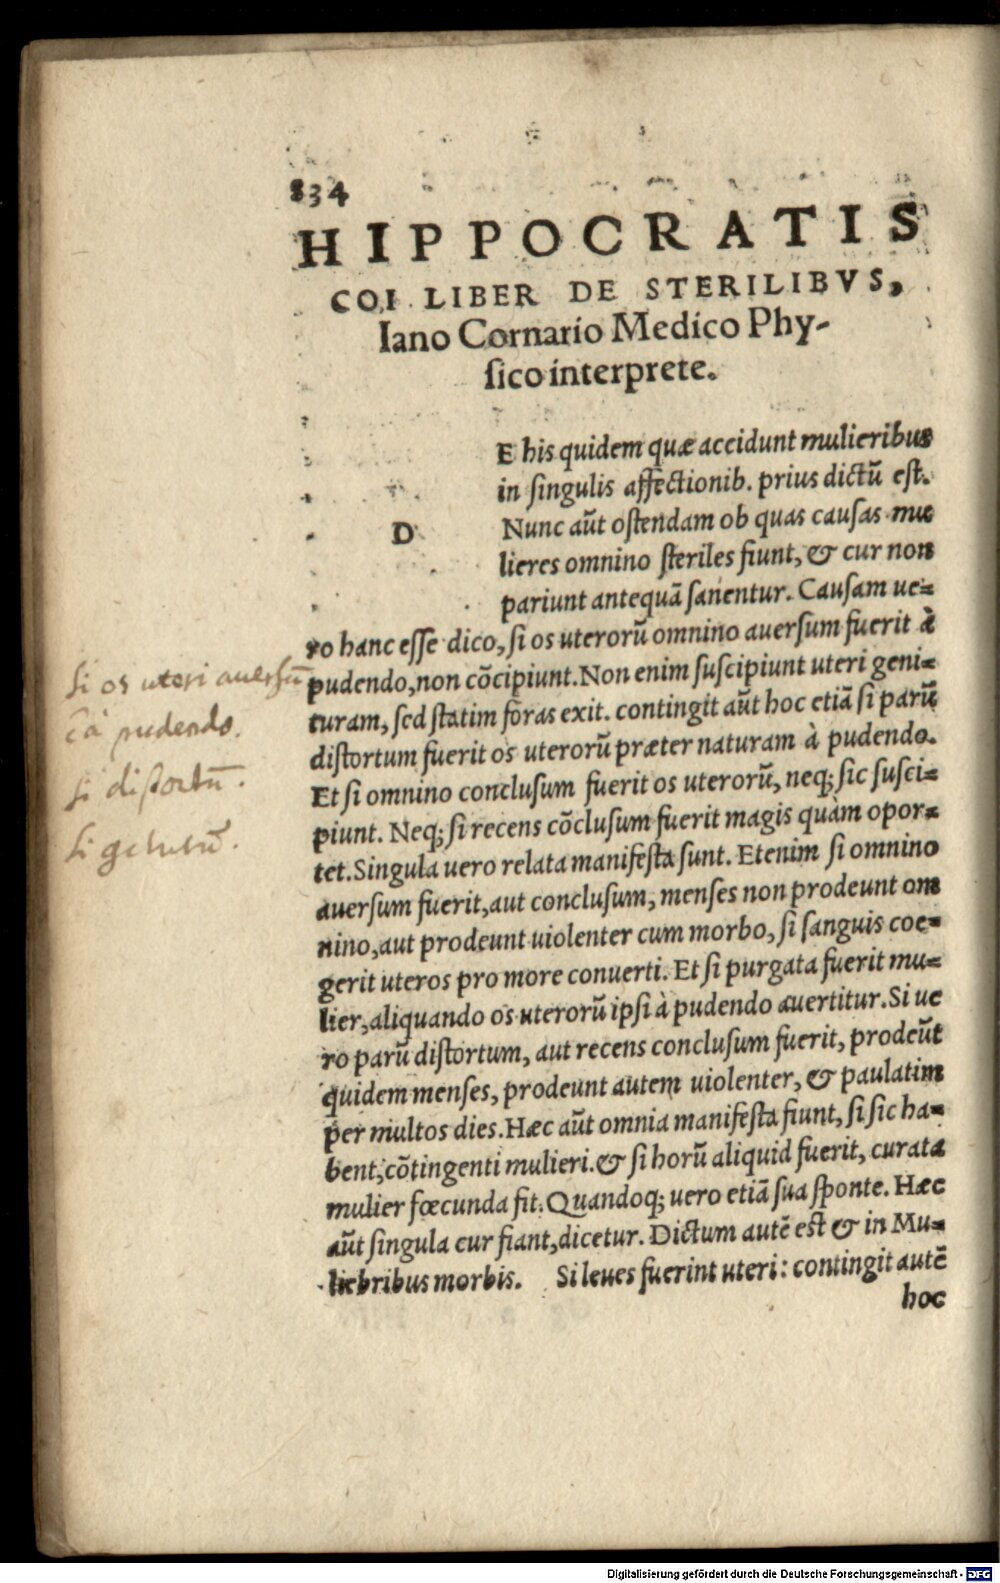 834
HIPPOCRATIS
COI LIBER DE STERILIBVS,
Iano Cornario Medico Phy-
ſico interprete.
D
E his quidem quæ accidunt mulieribus
in ſingulis affectionib. prius dictū eſt.
Nunc aūt oſtendam ob quas cauſas mu
lieres omnino ſteriles fiunt, & cur non
pariunt antequā ſanentur. Cauſam ue-
ro hanc eſſe dico, ſi os uterorū omnino auerſum fuerit à
pudendo, non cōcipiunt. Non enim ſuſcipiunt uteri geni-
turam, ſed ſtatim foras exit. contingit aūt hoc etiā ſi parū
diſtortum fuerit os uterorū præter naturam à pudendo.
Et ſi omnino concluſum fuerit os uterorū, neq; ſic ſuſci-
piunt. Neq; ſi recens cōcluſum fuerit magis quàm opor-
tet. Singula uero relata manifeſta ſunt. Etenim ſi omnino
auerſum fuerit, aut concluſum, menſes non prodeunt om
nino, aut prodeunt uiolenter cum morbo, ſi ſanguis coe-
gerit uteros pro more conuerti. Et ſi purgata fuerit mu-
lier, aliquando os uterorū ipſi à pudendo auertitur. Si ue
ro parū diſtortum, aut recens concluſum fuerit, prodeūt
quidem menſes, prodeunt autem uiolenter, & paulatim
per multos dies. Hæc aūt omnia manifeſta fiunt, ſi ſic ha-
bent, cōtingenti mulieri. & ſi horū aliquid fuerit, curata
mulier fœcunda fit. Quandoq; uero etiā ſua ſponte. Hæc
aūt ſingula cur fiant, dicetur. Dictum autē eſt & in Mu-
liebribus morbis. Si leues fuerint uteri: contingit autē
hoc
ſi os uteri auerſū
à pudendo.
ſi diſtortū.
ſi
Digitalisierung gefördert durch die Deutsche Forschungsgemeinschaft - DFG